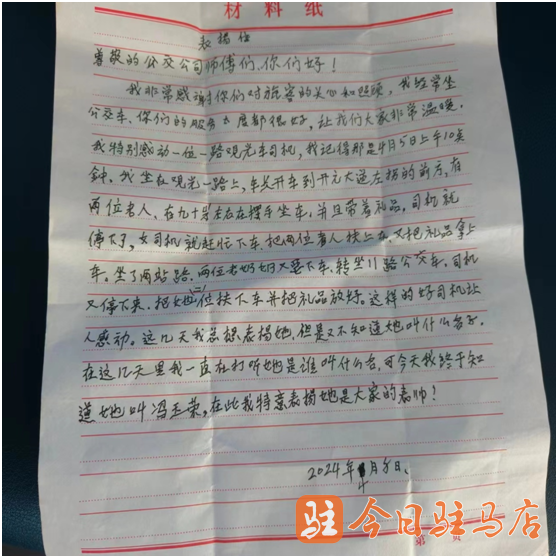 材料纸
表扬信
尊敬的公交公司师傅们，你们好！
我非常感谢你们对旅客的关心和照顾，我经常坐
公交车，你们的服务态度都很好，让我们大家非常温暖，
我特别感动一位一路观光车司机，我记得那是4月5日上午10点
钟，我坐在观光一路上，车长开车到开元大道左拐的前方，有
两位老人，在九十岁左右在摆手坐车，并且带着礼品，司机就
停下了，女司机就赶忙下车，把两位老人扶上车，又把礼品拿上
车，坐了两站路，两位老奶奶又要下车，转坐11路公交车，司机
又停下来，把她二位扶下车并把礼品放好。这样的好司机让
人感动。这几天我总想表扬她，但是又不知道她叫什么名子，
在这几天里我一直在打听她是谁叫什么名，可今天我终于知
道她叫冯玉荣，在此我特意表扬她是大家的表帅！
2024年4月8日
驻 今日驻马店
第 页